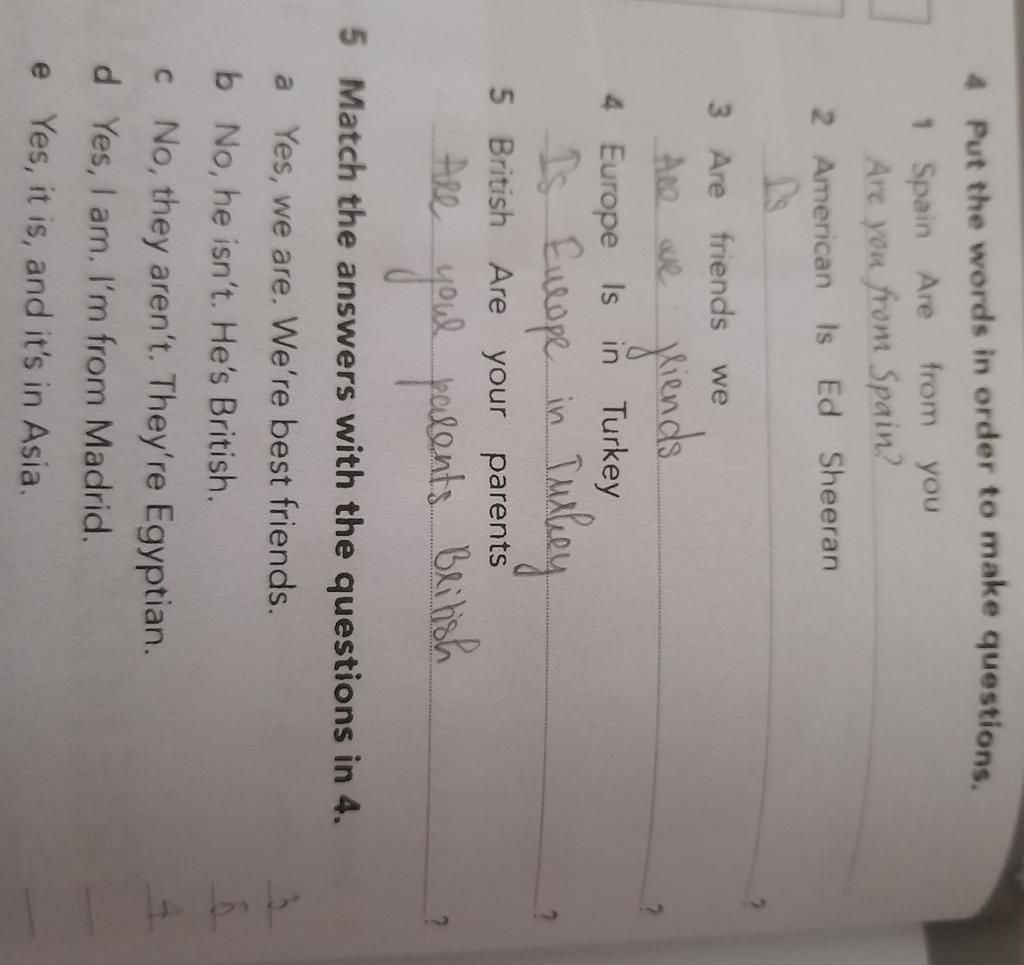 4 Put the words in order to make questions.
1 Spain Are from you
Are you from Spain?
2 American Is Ed Sheeran
Is ?
3 Are friends we
Are we friends ?
4 Europe Is in Turkey
Is Europe in Turkey ?
5 British Are your parents
Are your parents British ?
5 Match the answers with the questions in 4.
a Yes, we are. We're best friends. 3
b No, he isn't. He's British. 5
c No, they aren't. They're Egyptian. 4
d Yes, I am. I'm from Madrid.
e Yes, it is, and it's in Asia.